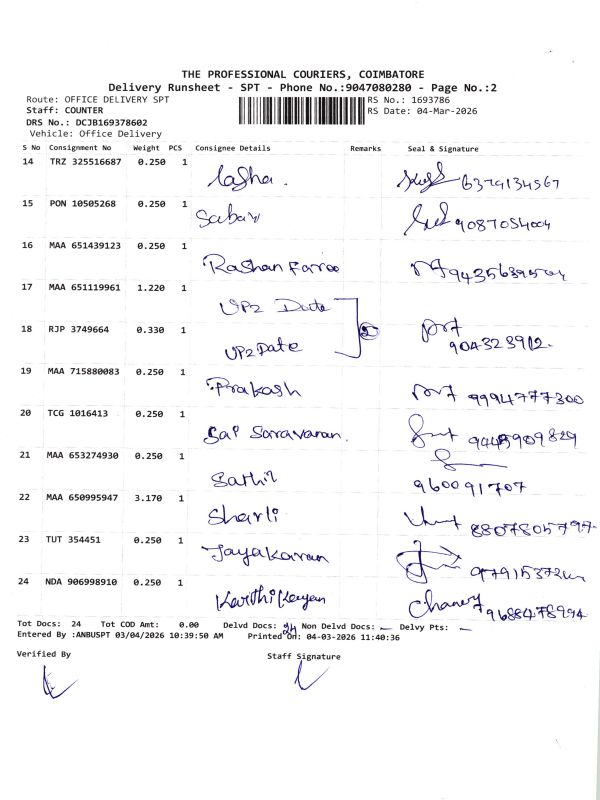 THE PROFESSIONAL COURIERS, COIMBATORE
Delivery Runsheet - SPT - Phone No.:9047080280 - Page No.:2
Route: OFFICE DELIVERY SPT RS No.: 1693786
Staff: COUNTER RS Date: 04-Mar-2026
DRS No.: DCJB169378602
Vehicle: Office Delivery
S No Consignment No Weight PCS Consignee Details Remarks Seal & Signature
14 TRZ 325516687 0.250 1
6379134567
15 PON 10505268 0.250 1
Sabari 9087054004
16 MAA 651439123 0.250 1
Rashan Faroo
17 MAA 651119961 1.220 1
UP2 Date
18 RJP 3749664 0.330 1 2
UP2Date 904323912
19 MAA 715880083 0.250 1
Prakash 9994777300
20 TCG 1016413 0.250 1
Sai Saravanan. 9445909829
21 MAA 653274930 0.250 1
960091707
22 MAA 650995947 3.170 1
Sharli 8807805797
23 TUT 354451 0.250 1
Jayakaran
24 NDA 906998910 0.250 1
Karthikeyan 9688478994
Tot Docs: 24 Tot COD Amt: 0.00 Delvd Docs: 24 Non Delvd Docs: — Delvy Pts: —
Entered By :ANBUSPT 03/04/2026 10:39:50 AM Printed On: 04-03-2026 11:40:36
Verified By Staff Signature